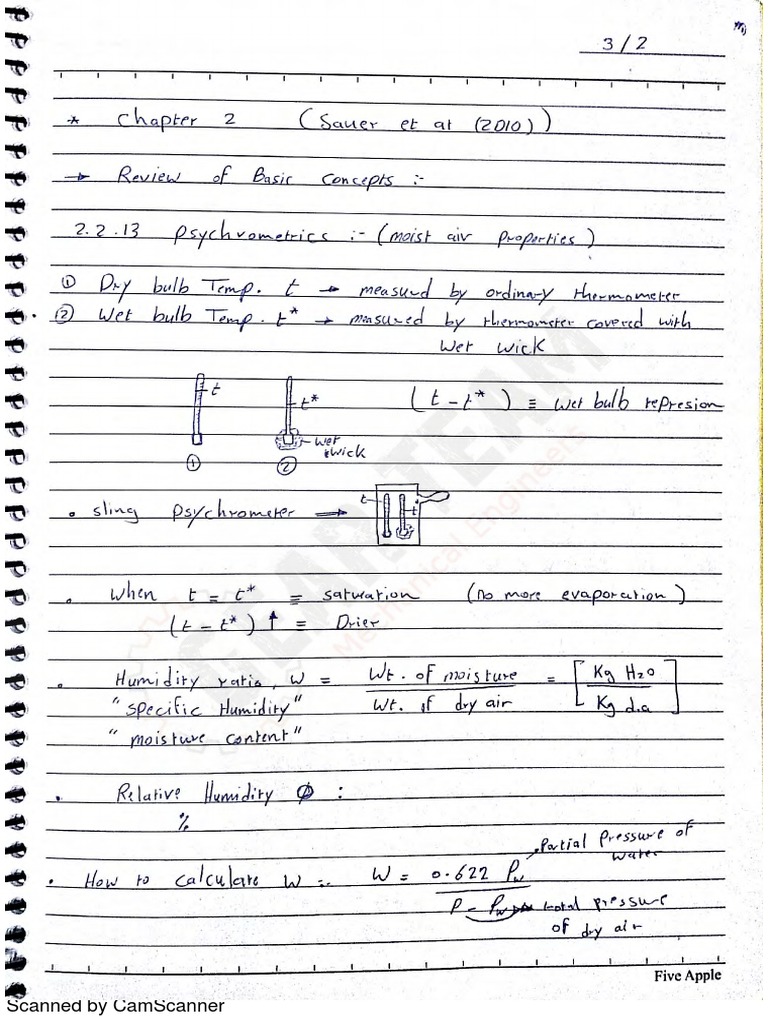 3/2
* Chapter 2 (Sauer et al (2010))
→ Review of Basic Concepts :-
2.2.13 Psychrometrics :- (moist air properties)
① Dry bulb Temp. t → measured by ordinary thermometer
② Wet bulb Temp. t* → measured by thermometer covered with
wet wick
t
t*
(t - t*) ≡ wet bulb represion
wet
wick
① ②
• sling psychrometer →
t
t
• When t = t* = saturation (no more evaporation)
(t - t*) ↑ = Drier
• Humidity ratio, W = Wt. of moisture / Wt. of dry air = [Kg H2O / Kg d.a]
"specific Humidity"
"moisture content"
• Relative Humidity Φ :
%
Partial Pressure of
water
• How to calculate W :- W = 0.622 Pw / P - Pw → total pressure
of dry air
Five Apple
Scanned by CamScanner
GEAR TEAM
Mechanical Engineers